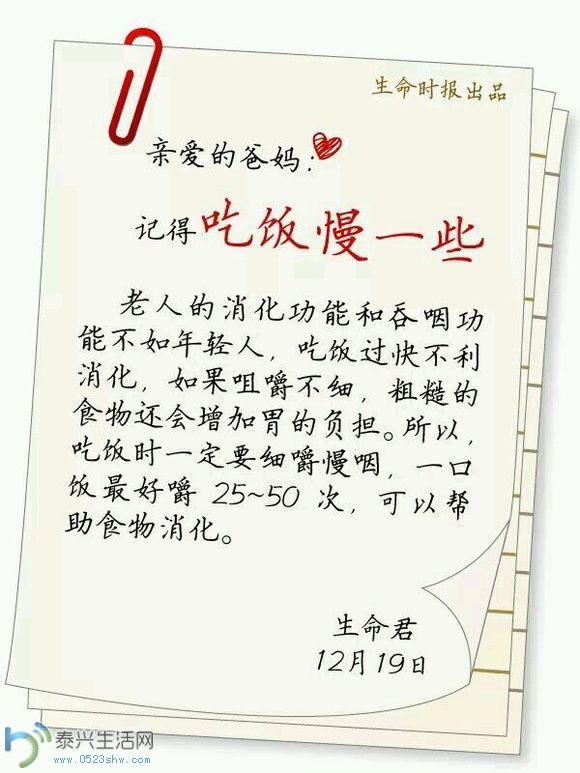 生命时报出品
亲爱的爸妈：
记得吃饭慢一些
老人的消化功能和吞咽功
能不如年轻人，吃饭过快不利
消化，如果咀嚼不细，粗糙的
食物还会增加胃的负担。所以，
吃饭时一定要细嚼慢咽，一口
饭最好嚼 25~50 次，可以帮
助食物消化。
生命君
12月19日
泰兴生活网
www.0523shw.com